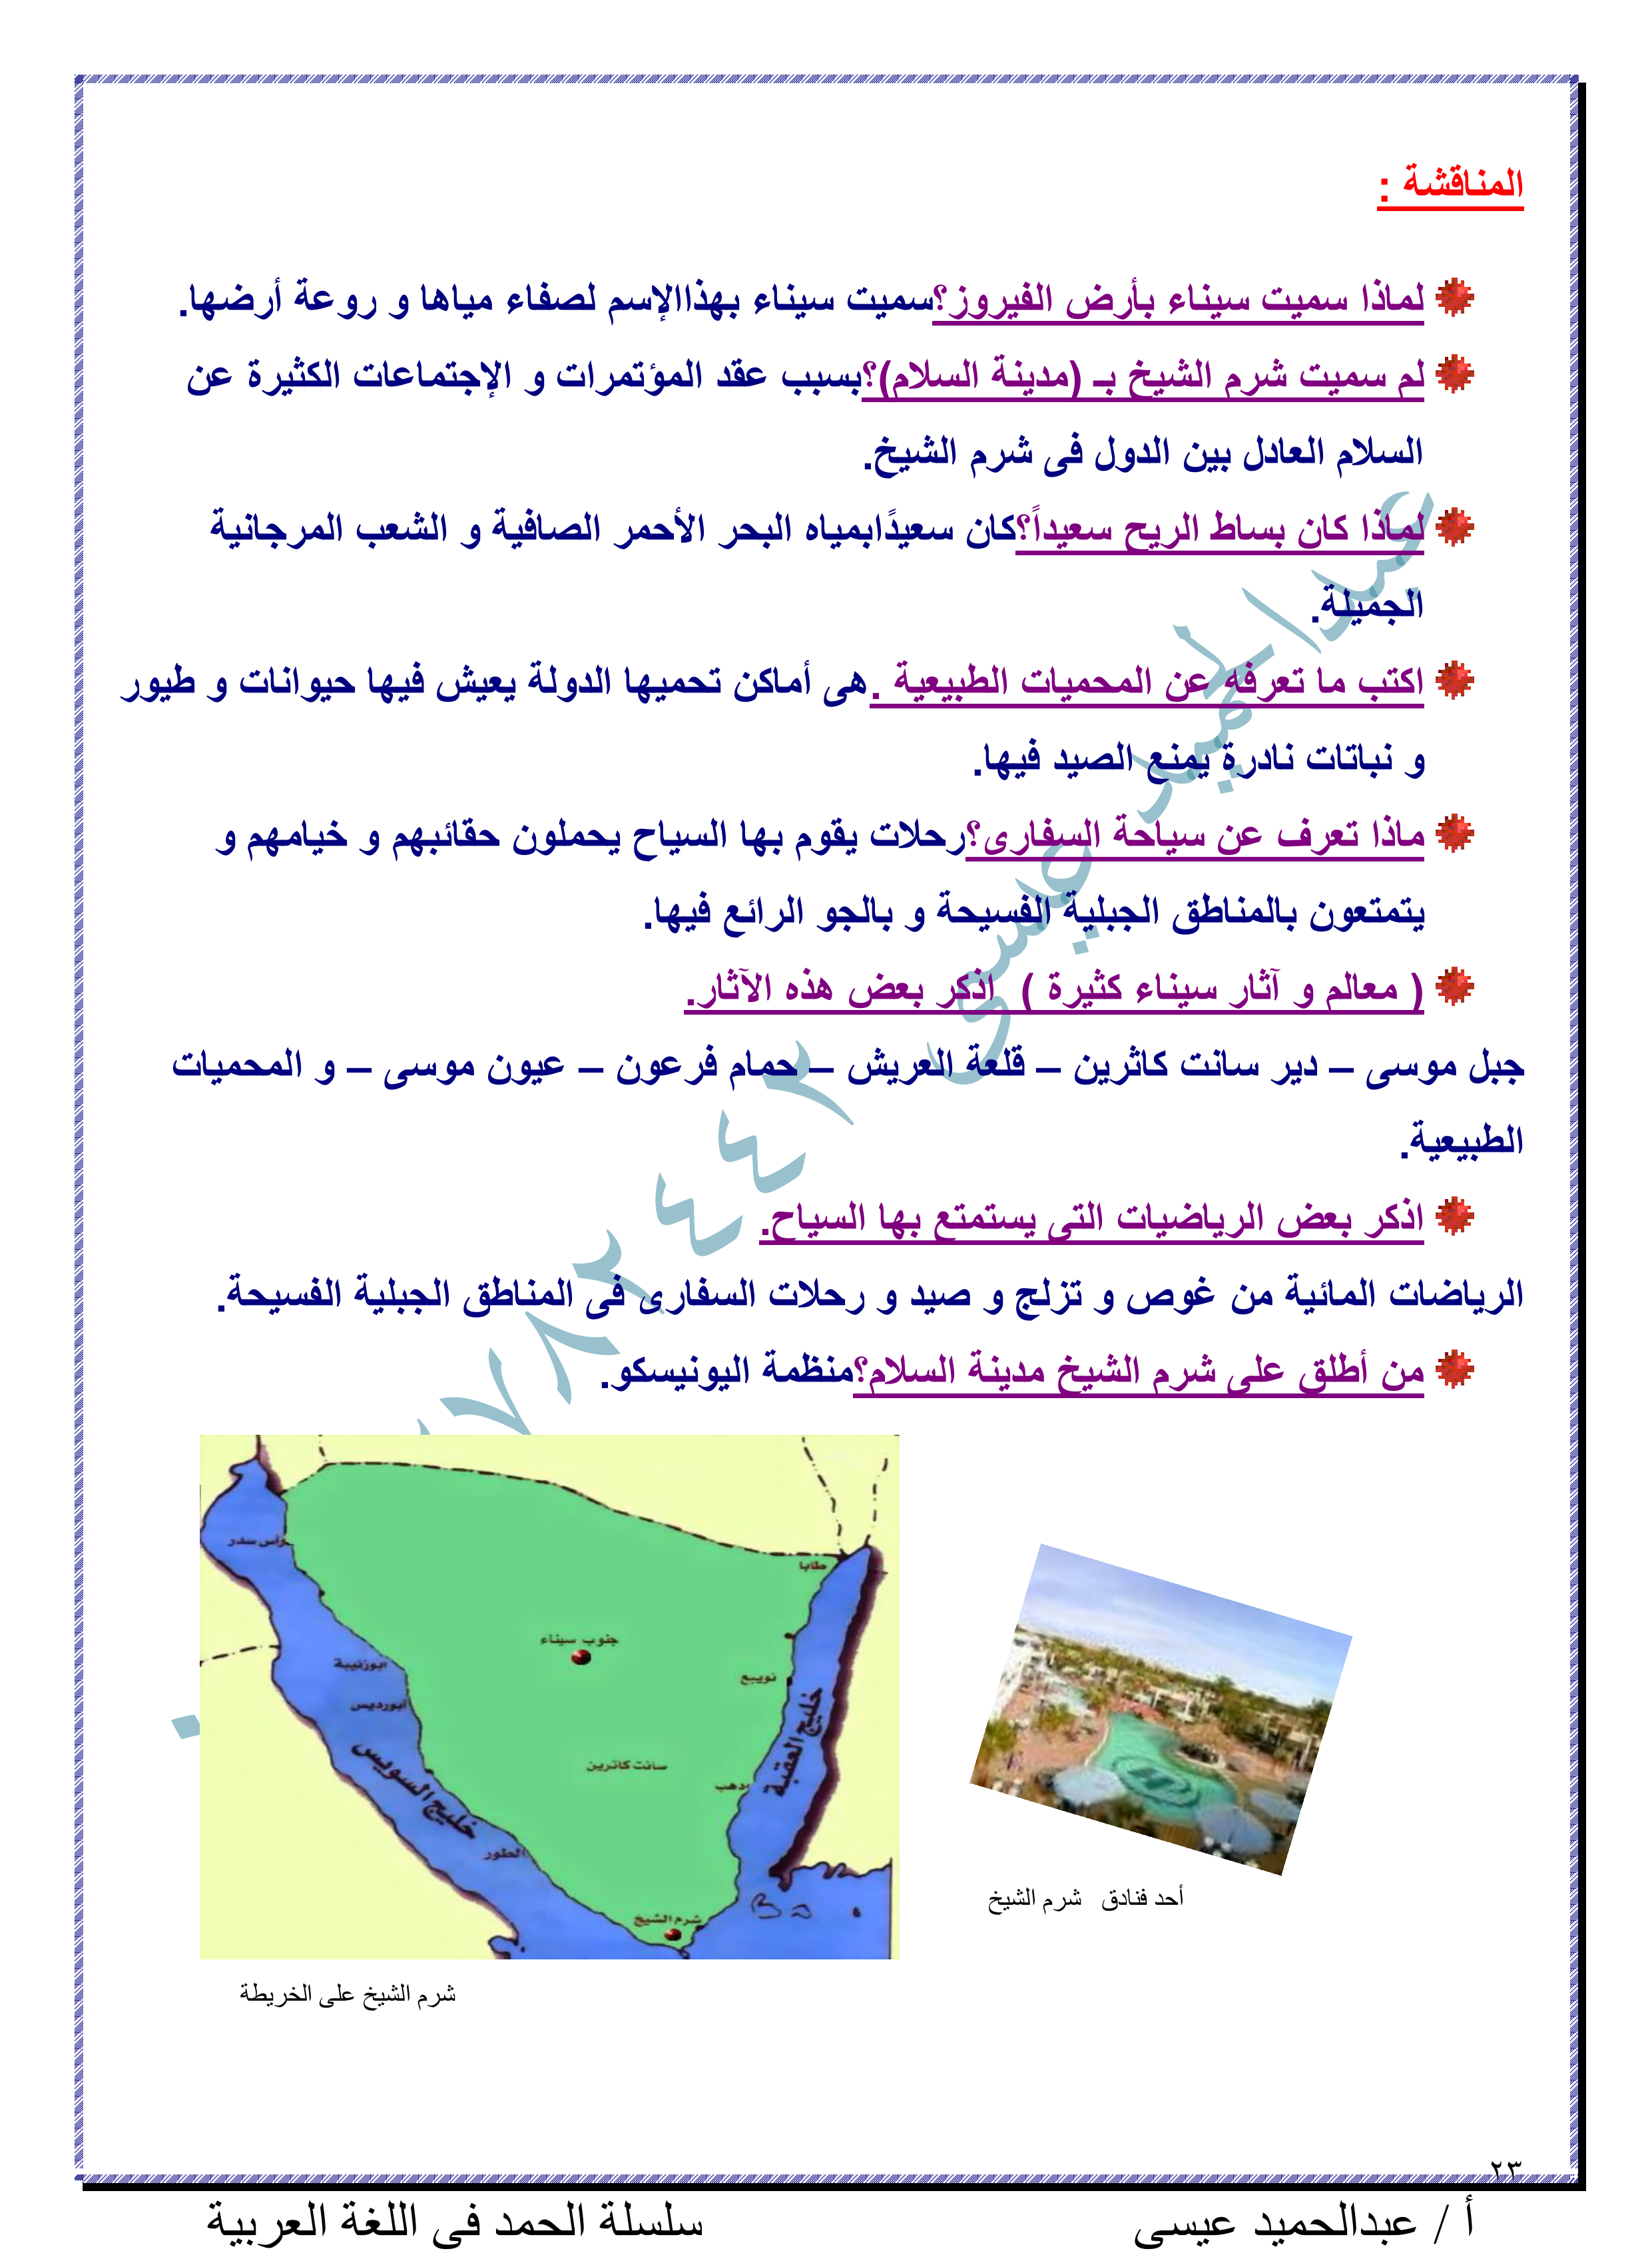 المناقشة :
لماذا سميت سيناء بأرض الفيروز؟سميت سيناء بهذاالإسم لصفاء مياها و روعة أرضها.
لم سميت شرم الشيخ بـ (مدينة السلام)؟بسبب عقد المؤتمرات و الإجتماعات الكثيرة عن
السلام العادل بين الدول فى شرم الشيخ.
لماذا كان بساط الريح سعيداً؟كان سعيدًابمياه البحر الأحمر الصافية و الشعب المرجانية
الجميلة.
اكتب ما تعرفه عن المحميات الطبيعية .هى أماكن تحميها الدولة يعيش فيها حيوانات و طيور
و نباتات نادرة يمنع الصيد فيها.
ماذا تعرف عن سياحة السفارى؟رحلات يقوم بها السياح يحملون حقائبهم و خيامهم و
يتمتعون بالمناطق الجبلية الفسيحة و بالجو الرائع فيها.
( معالم و آثار سيناء كثيرة ) اذكر بعض هذه الآثار.
جبل موسى – دير سانت كاثرين – قلعة العريش – حمام فرعون – عيون موسى – و المحميات
الطبيعية.
اذكر بعض الرياضيات التى يستمتع بها السياح.
الرياضات المائية من غوص و تزلج و صيد و رحلات السفارى فى المناطق الجبلية الفسيحة.
من أطلق على شرم الشيخ مدينة السلام؟منظمة اليونيسكو.
رأس سدر
طابا
جنوب سيناء
ابوزنيبة
نويبع
أبورديس
خليج العقبة
سانت كاترين
دهب
خليج السويس
الطور
شرم الشيخ
أحد فنادق شرم الشيخ
شرم الشيخ على الخريطة
٢٣
أ / عبدالحميد عيسى سلسلة الحمد فى اللغة العربية
عبدالحميد عيسى